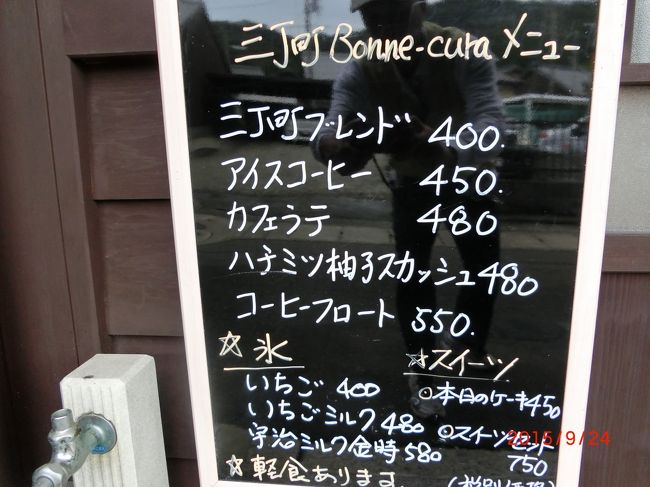 三丁町Bonne-cura メニュー
三丁町ブレンド 400.
アイスコーヒー 450.
カフェラテ 480
ハチミツ柚子スカッシュ 480
コーヒーフロート 550.
☆氷
いちご 400
いちごミルク 480
宇治ミルク金時 580
☆軽食あります
☆スイーツ
◎本日のケーキ 450
◎スイーツセット
750
2015/9/24